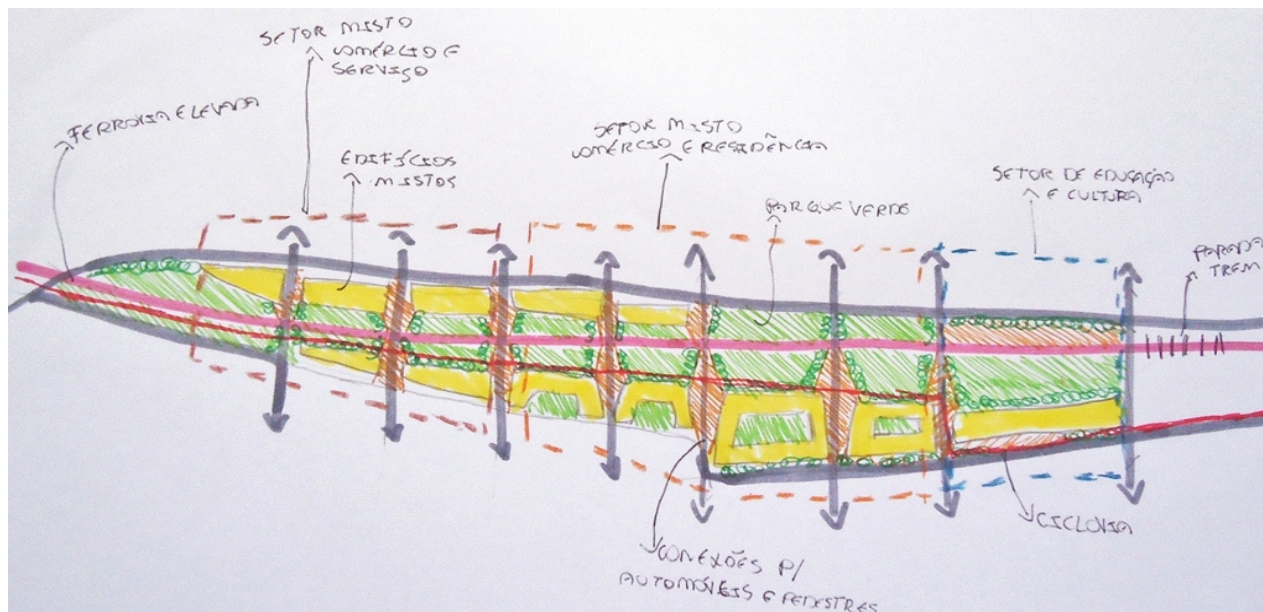 SETOR MISTO
COMÉRCIO E
SERVIÇO
FERROVIA ELEVADA
EDIFÍCIOS
MISTOS
SETOR MISTO
COMÉRCIO E RESIDÊNCIA
PARQUE VERDE
SETOR DE EDUCAÇÃO
E CULTURA
PARADA
TREM
CICLOVIA
CONEXÕES P/
AUTOMÓVEIS E PEDESTRES